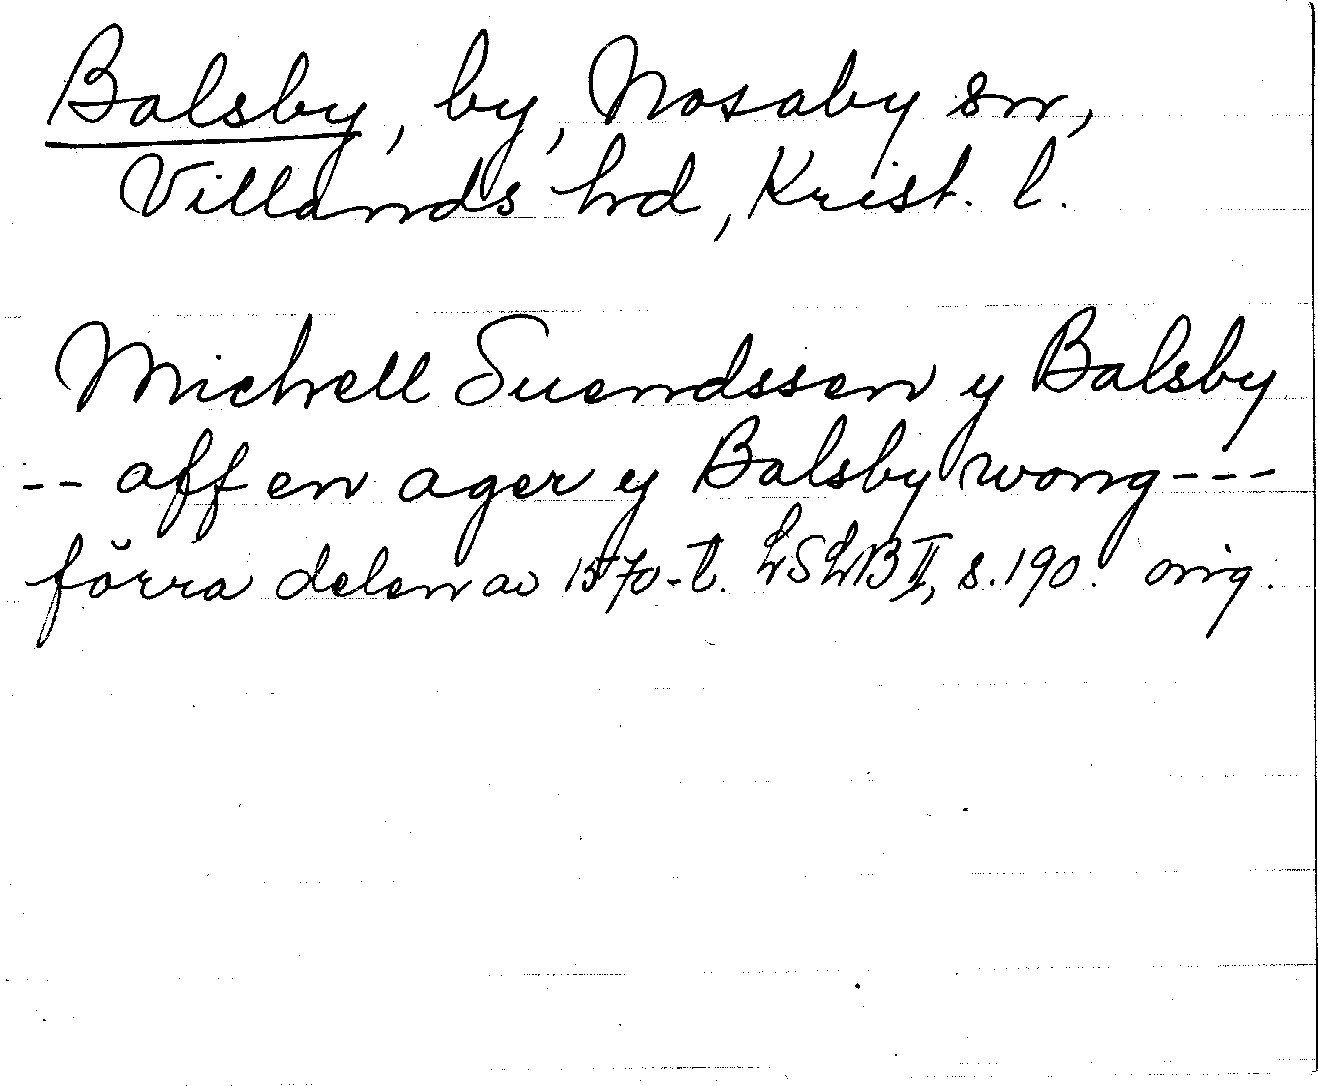 Balsby, by, Nosaby sn,
Villands hd, Krist. l.
Michell Suendssen y Balsby
-- aff en ager y Balsby wong---
förra delen av 1570-t. LSLB II, s. 190. orig.